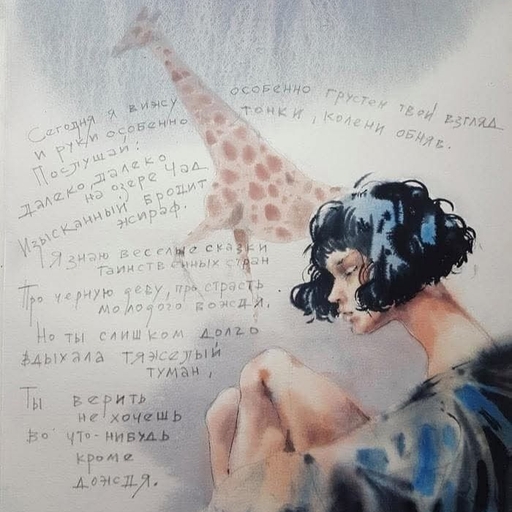 Сегодня я вижу особенно грустен твой взгляд
и руки особенно тонки, колени обняв.
Послушай:
далеко, далеко
на озере Чад
Изысканный бродит
жираф.
Я знаю веселые сказки
таинственных стран
Про черную деву, про страсть
молодого вождя.
Но ты слишком долго
вдыхала тяжелый
туман,
Ты верить
не хочешь
во что-нибудь
кроме
дождя.